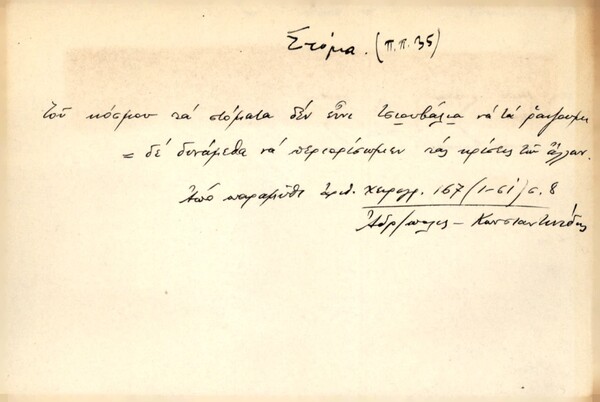 Στόμα. (π.π. 35)
Τοῦ κόσμου τά στόματα δέν εἶνι τσιουβάλια νά τά ράψουμι
= δέ δυνάμεθα νά περιορίσωμεν τάς κρίσεις τῶν ἄλλων.
Ἀπό παραμύθι ἐριθ. χειρογρ. 167 (1-61) σ. 8
Ἀδρ/πολις - Κωνσταντινίδης